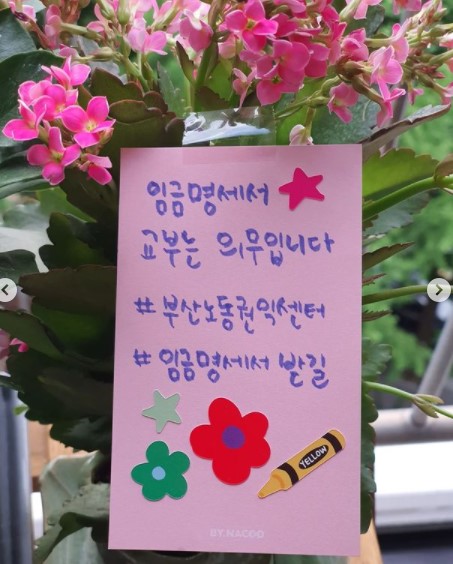 임금명세서
교부는 의무입니다
#부산노동권익센터
#임금명세서 받길
YELLOW
BY.NACOO